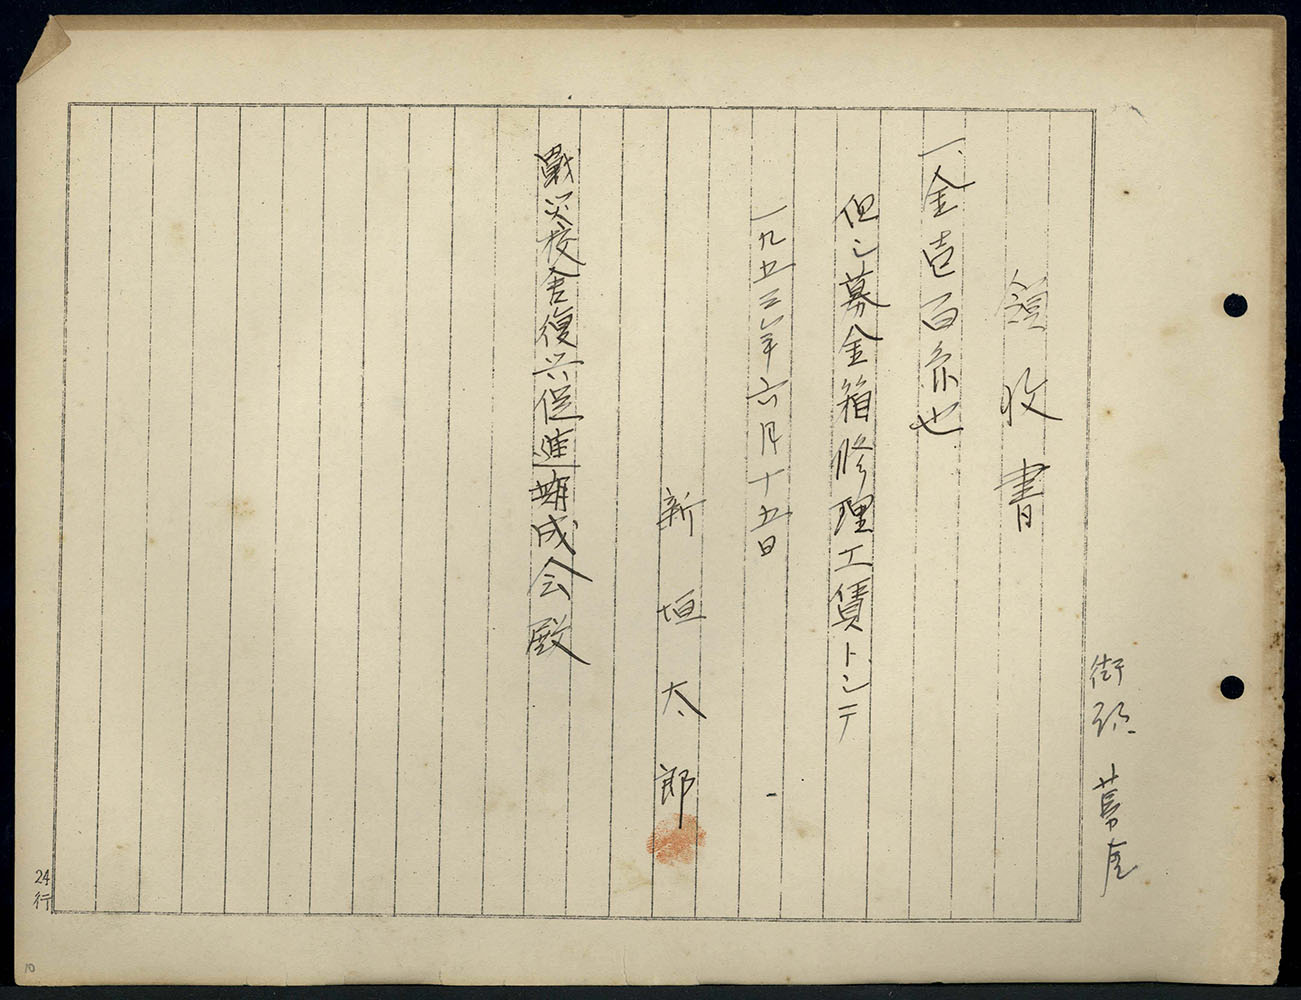 街頭募金
領收書
一、金壱百円也
但シ募金箱修理工賃トシテ
一九五三年六月十五日
新垣太郎
戰災校舍復兴促進期成会殿
24行
10